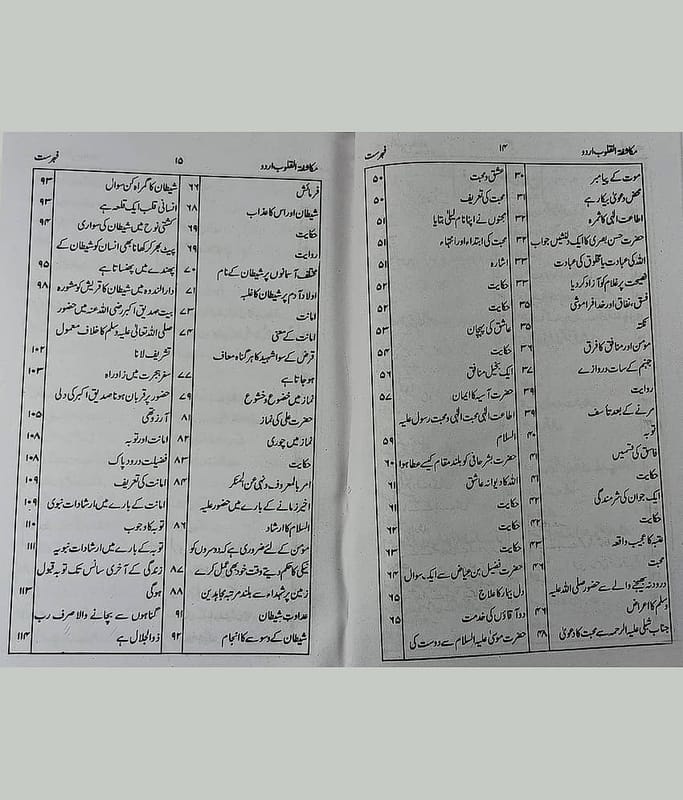 مکاشفۃ القلوب اردو ۱۴ فہرست
موت کے پیامبر ۳۰
محض دعویٰ بیکار ہے ۳۱
اطاعت الٰہی کا ثمرہ ۳۲
حضرت حسن بصری کا ایک دلنشیں جواب ۳۲
اللہ کی عبادت یا مخلوق کی عبادت ۳۳
نصیحت پر غلام کو آزاد کر دیا ۳۳
فسق، نفاق اور خدا فراموشی ۳۵
نکتہ ۳۵
مؤمن اور منافق کا فرق ۳۶
جہنم کے سات دروازے ۳۷
روایت ۳۹
مرنے کے بعد تأسف ۳۹
توبہ ۴۰
فاسق کی قسمیں ۴۱
حکایت ۴۱
ایک جوان کی شرمندگی ۴۲
حکایت ۴۲
عتبہ کا عجیب واقعہ ۴۳
محبت ۴۶
درود نہ بھیجنے والے سے حضور صلی اللہ علیہ
وسلم کا اعراض ۴۶
جناب شبلی علیہ الرحمہ سے محبت کا دعویٰ ۴۸
عشق و محبت ۵۰
محبت کی تعریف ۵۰
مجنوں نے اپنا نام لیلیٰ بتایا ۵۱
محبت کی ابتداء اور انتہاء ۵۱
اشارہ ۵۱
حکایت ۵۲
حکایت ۵۲
عاشق کی پہچان ۵۳
حکایت ۵۴
ایک بخیل منافق ۵۶
حضرت آسیہ کا ایمان ۵۷
اطاعت الٰہی محبت الٰہی و محبت رسول علیہ
السلام ۵۹
حضرت بشر حافی کو بلند مقام کیسے عطا ہوا ۶۰
اللہ کا دیوانہ عاشق ۶۱
حکایت ۶۱
حکایت ۶۲
حکایت ۶۳
حضرت فضیل بن عیاض سے ایک سوال ۶۴
دل بیمار کا علاج ۶۵
دو آقاؤں کی خدمت ۶۵
حضرت موسیٰ علیہ السلام سے دوست کی
مکاشفۃ القلوب اردو ۱۵ فہرست
فرمائش ۶۶
شیطان اور اس کا عذاب ۶۸
حکایت ۶۹
روایت ۶۹
مختلف آسمانوں پر شیطان کے نام ۷۰
اولاد آدم پر شیطان کا غلبہ ۷۱
امانت ۷۳
امانت کے معنی ۷۴
قرض کے سوا شہید کا ہر گناہ معاف
ہو جاتا ہے ۷۷
نماز میں خضوع و خشوع ۷۹
حضرت علی کی نماز ۸۱
نماز میں چوری ۸۲
حکایت ۸۳
امر بالمعروف و نہی عن المنکر ۸۴
اخیر زمانے کے بارے میں حضور علیہ
السلام کا ارشاد ۸۶
مؤمن کے لئے ضروری ہے کہ دوسروں کو
نیکی کا حکم دیتے وقت خود بھی عمل کرے ۸۷
زمین پر شہداء سے بلند مرتبہ مجاہدین ۸۸
عداوت شیطان ۹۱
شیطان کے وسوسے کا انجام ۹۲
شیطان کا گمراہ کن سوال ۹۳
انسانی قلب ایک قلعہ ہے ۹۳
کشتی نوح میں شیطان کی سواری ۹۴
پیٹ بھر کر کھانا بھی انسان کو شیطان کے
پھندے میں پھنساتا ہے ۹۵
دارالندوہ میں شیطان کا قریش کو مشورہ ۹۸
بیت صدیق اکبر رضی اللہ عنہ میں حضور
صلی اللہ تعالیٰ علیہ وسلم کا خلاف معمول
تشریف لانا ۱۰۲
سفر ہجرت میں زادراہ ۱۰۳
حضور پر قربان ہونا صدیق اکبر کی دلی
آرزو تھی ۱۰۵
امانت اور توبہ ۱۰۸
فضیلت درود پاک ۱۰۸
امانت کی تعریف ۱۰۹
امانت کے بارے میں ارشادات نبوی ۱۰۹
توبہ کا وجوب ۱۱۰
توبہ کے بارے میں ارشادات نبویہ ۱۱۱
زندگی کے آخری سانس تک توبہ قبول
ہوگی ۱۱۳
گناہوں سے بچانے والا صرف رب
ذوالجلال ہے ۱۱۴